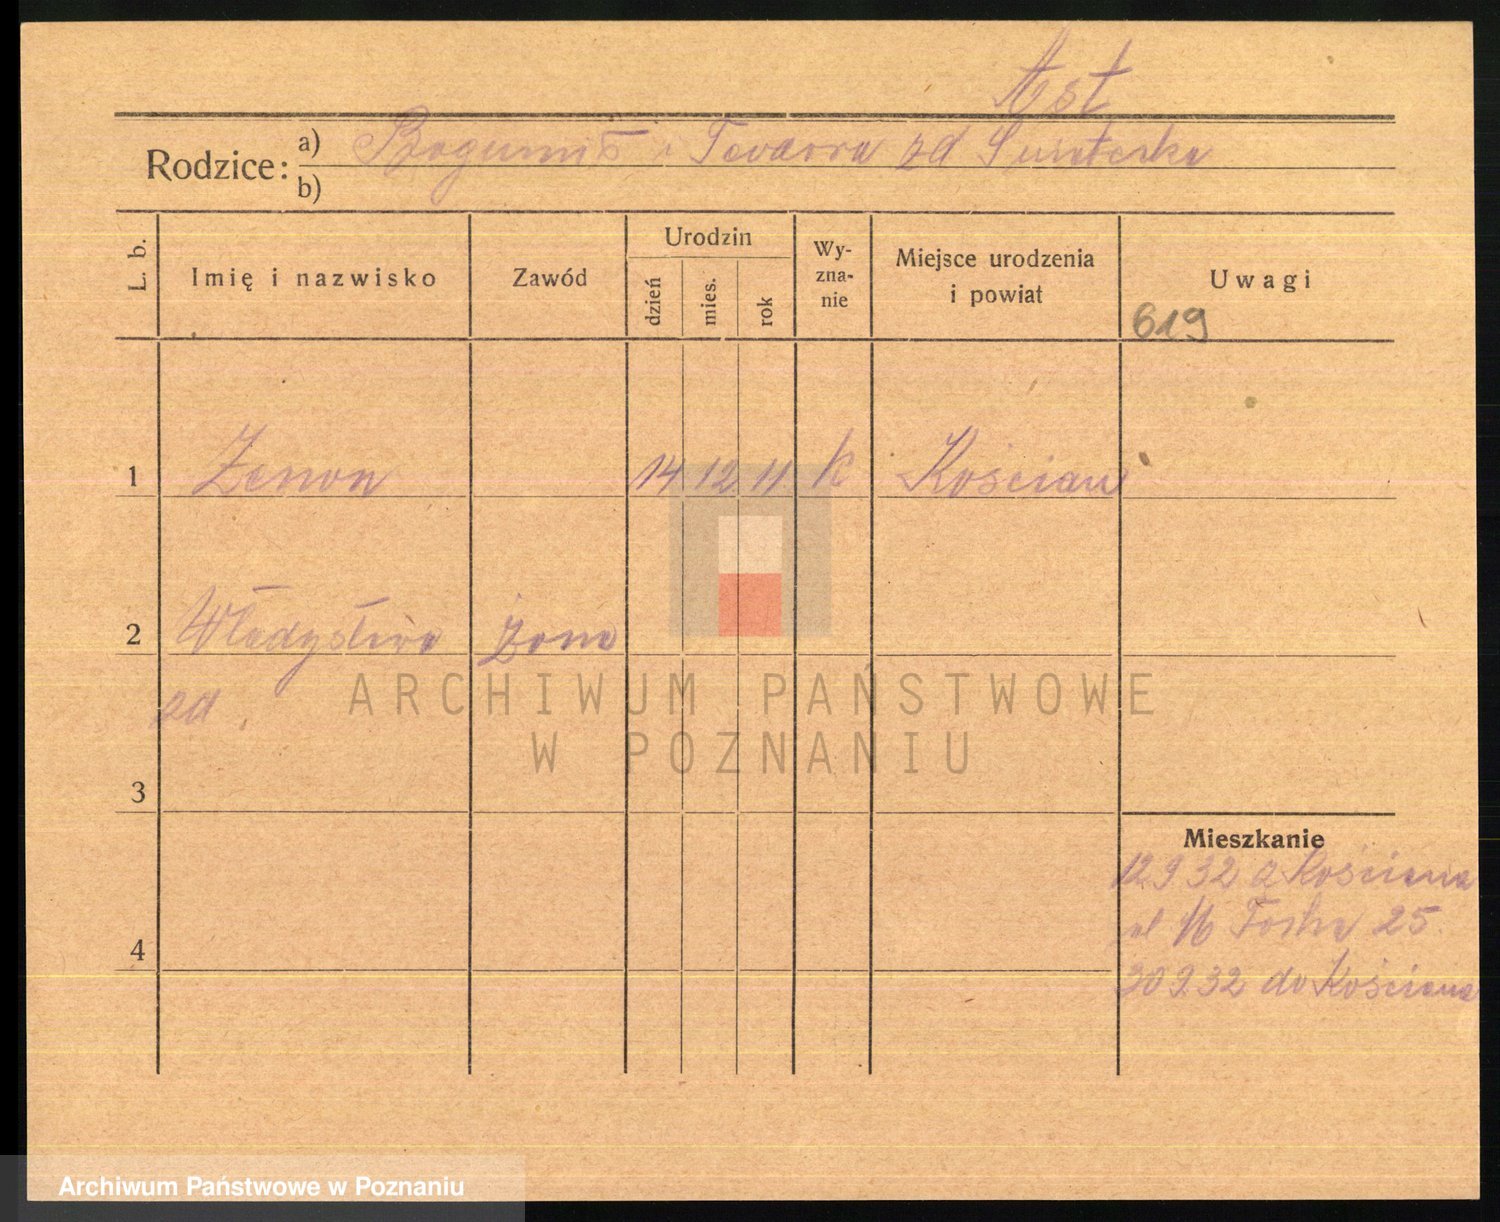 Ast
Rodzice: a) Bogumił i Teodora zd
b)
L. b.
Imię i nazwisko
Zawód
Urodzin
dzień
mies.
rok
Wy-
zna-
nie
Miejsce urodzenia
i powiat
Uwagi
619
1 Zenon 14 12 11 k Kościan
2 Władysława żona
zd
ARCHIWUM PAŃSTWOWE
W POZNANIU
3
Mieszkanie
12 9 32 z Kościana
ul Focha 25.
4
30 9 32 do Kościana
Archiwum Państwowe w Poznaniu